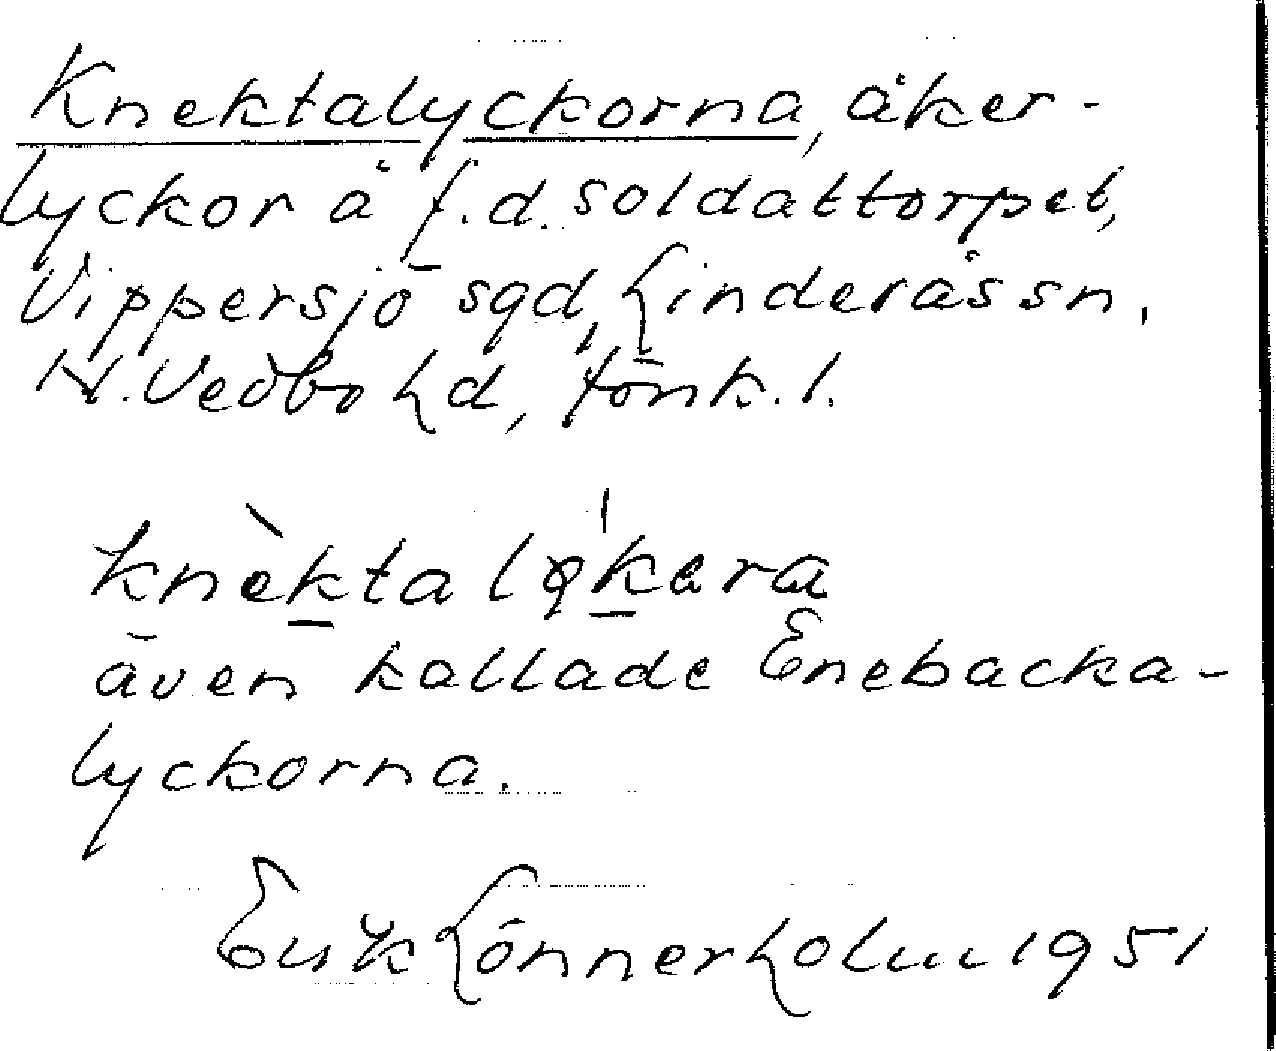 Knektalyckorna, åker-
lyckor å f.d. soldattorpet,
Vippersjö sgd, Linderås sn.
N. Vedbo hd, Jönk. l.
knèktaløkera
även kallade Enebacka-
lyckorna.
Erik Lönnerholm 1951